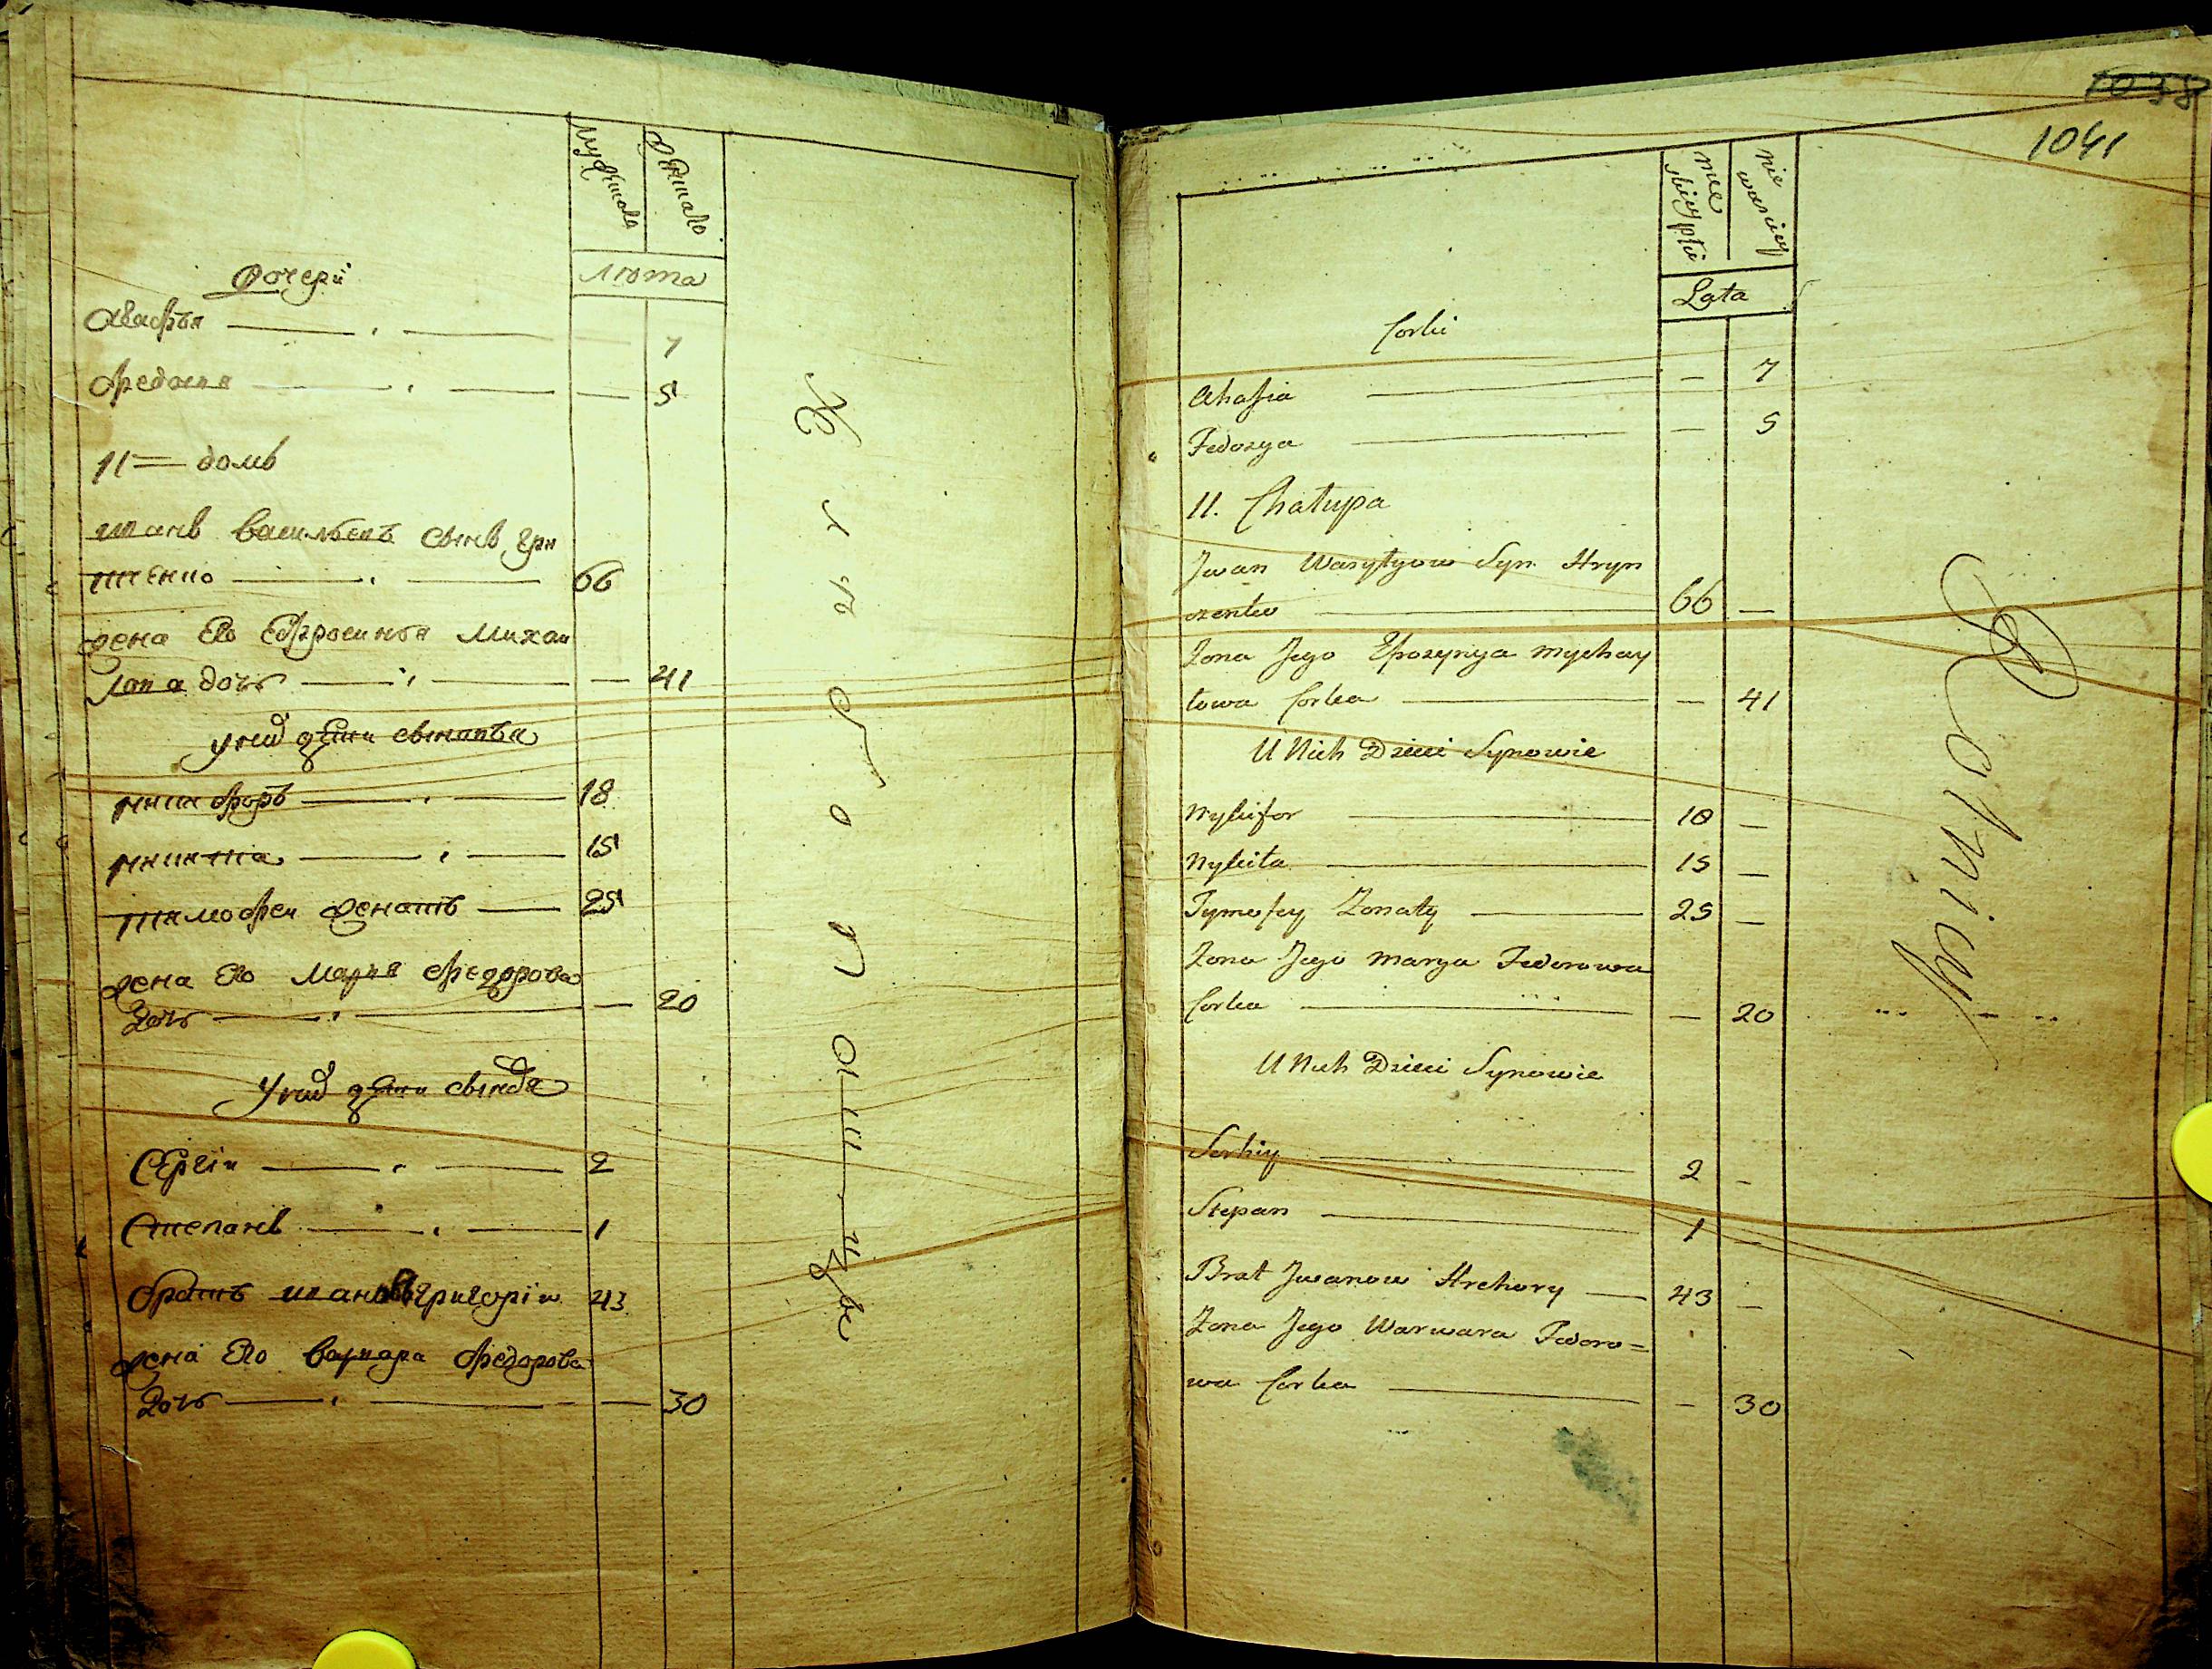 мужеска
женска
лѣта
Дочери
Агафѣя — 7
Федосия — 5
11 домъ
иванъ василѣевъ сынъ гри
ченко — 66
жена Его Ефросинѣя михаи
лова дочь — 41
у них дѣти сыновья
никифоръ — 18
никита — 15
тимофеи женатъ — 25
жена Его Мария федорова
дочь — 20
у них дѣти сыновя
Сергiи — 2
Степанъ — 1
братъ ивановъ григорiи 43
жена Его варвара федорова
дочь — 30
1038
1041
męskiey płci
niewieściey
Lata
Corki
Ahafia — 7
Fedosya — 5
11. Chałupa
Jwan Wasylyow Syn Hryn
czenko — 66 —
Zona Jego Efrozynya Mychay
łowa Corka — 41
U Nich Dzieci Synowie
Nykifor — 18 —
Nykita — 15 —
Tymofey Zonaty — 25 —
Zona Jego Marya Fedorowa
Corka — 20
U Nich Dzieci Synowie
Serhiy — 2 —
Stepan — 1 —
Brat Jwanow Hrehory — 43 —
Zona Jego Warwara Fedoro=
wa Corka — 30